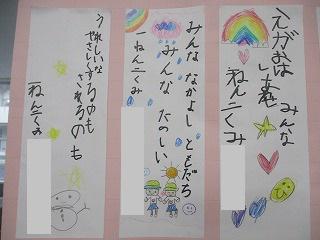 えがおは
いいね みんな
一ねん二くみ
みんな なかよし ともだち
みんな たのしい
一ねん二くみ
うれしいな
やさしくするのも
されるのも
一ねん二くみ